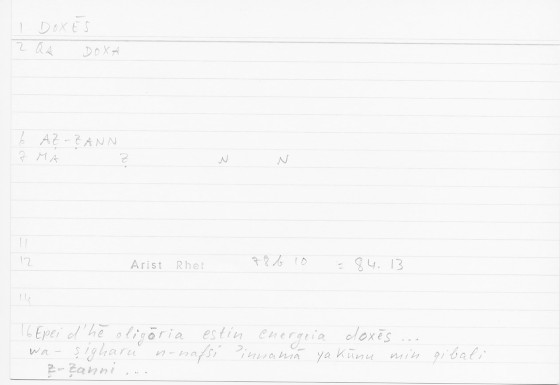 1 DOXĒS
2 QA DOXA
6 AẒ-ẒANN
7 MA Ẓ N N
11
12 Arist Rhet 78b 10 = 84.13
14
16 Epei d'hē oligōria estin energeia doxēs ...
wa- ṣigharu n-nafsi 'innamā yakūnu min qibali
ẓ-ẓanni ...